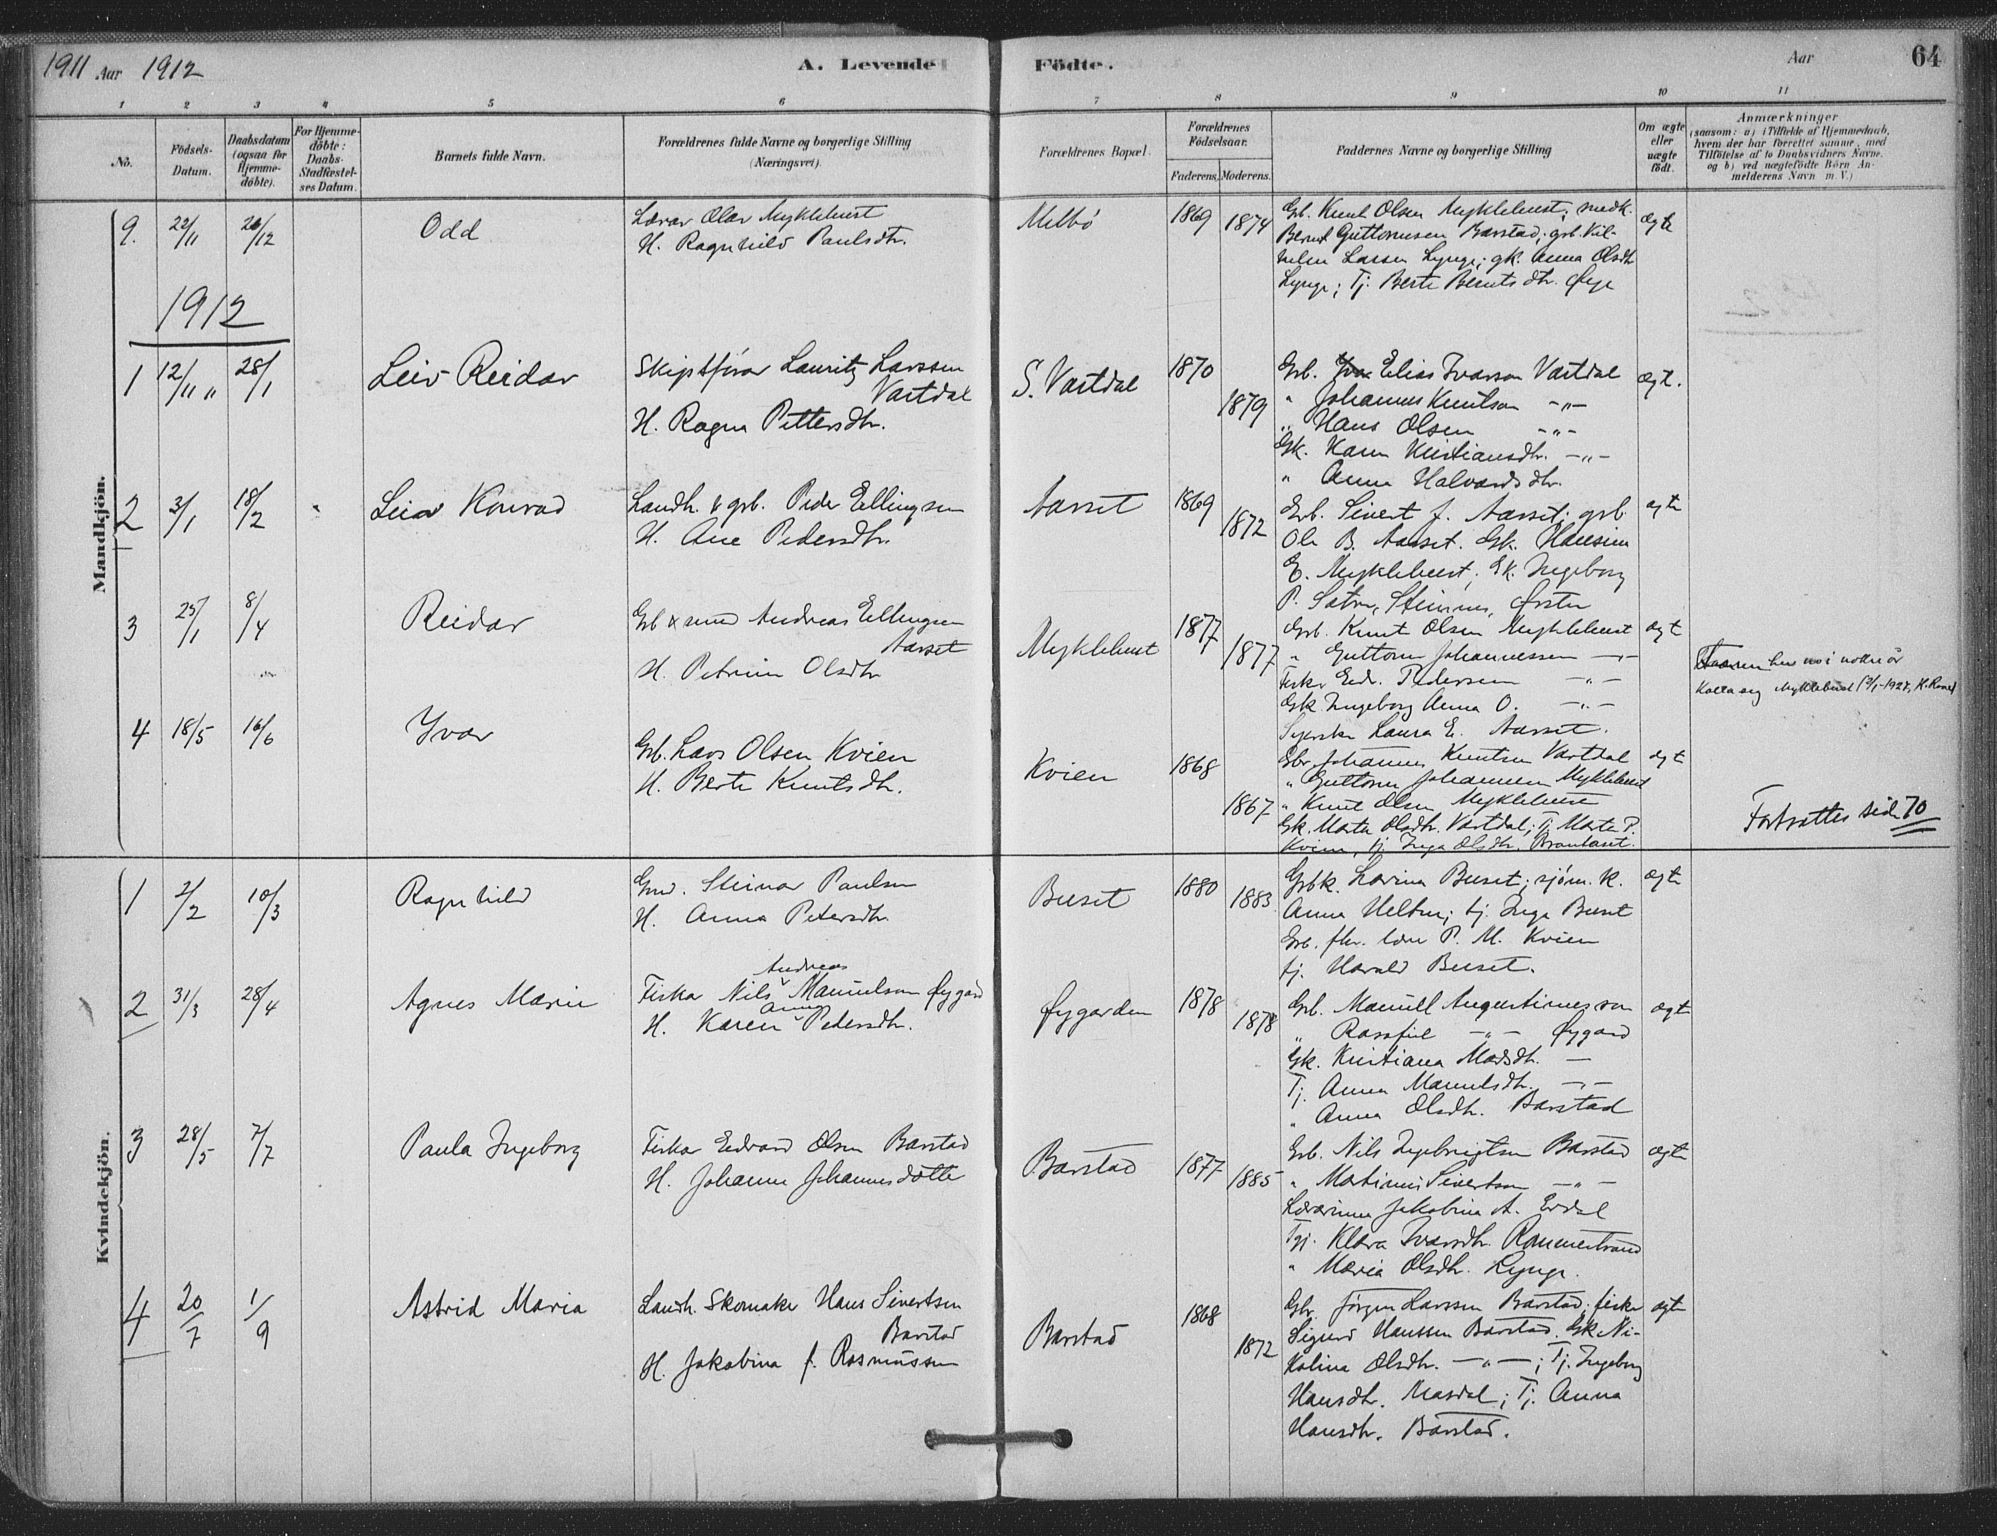 1911 Aar 1912
A. Levende Födte.
Aar 64
1 2 3 4 5 6 7 8 9 10 11
No.
Födsels-Datum.
Daabsdatum (ogsaa for Hjemme-döbte).
For Hjemme-döbte: Daabs-Stadfæstel-ses Datum.
Barnets fulde Navn.
Forældrenes fulde Navne og borgerlige Stilling (Næringsvei).
Forældrenes Bopæl.
Forældrenes Födselsaar.
Faderens. Moderens.
Faddernes Navne og borgerlige Stilling
Om ægte eller uægte födt.
Anmærkninger
(saasom: a) i Tilfælde af Hjemmedaab,
hvem der har forrettet samme, med
Tilföielse af to Daabsvidners Navne,
og b) ved uægtefödte Börn An-
melderens Navn m. V.)
Mandkjön.
9. 22/11 26/12 Odd
Lærar Olav Myklebust
H. Ragnhild Paulsdtr.
Melbö 1869 1874
Gb. Knut Olsen Myklebust; snedk.
Bernt Guttormsen Barstad; grb. Vil-
helm Lassen Lynge; gk. Anna Olsdtr
Lynge; Tj. Berte Berntsdtr. Øye
ægte
1912
1 12/11 " 28/1 Leiv Reidar
Skipsförar Lauritz Larssen
Vartdal
H. Ragna Pettersdtr.
S. Vartdal 1870 1879
Grb. Elias Ivarson Vartdal
" Johannes Knutson -"-
" Hans Olsen -"-
Gk. Karen Kristiansdtr. -"-
" Anna Halvardsdtr.
ægt.
2 3/1 18/2 Leiv Konrad
Landh. & grb. Peder Ellingsen
H. Ane Pedersdtr.
Aarset 1869 1872
Grb. Sivert J. Aarset; grb.
Ole B. Aarset. Gk. Hansine
E. Myklebust; Gk. Ingeborg
P. Sætre, Steinnes, Ørsten
ægte
3 25/1 8/4 Reidar
Gb & smed Andreas Ellingsen
Aarset
H. Petrine Olsdtr
Myklebust 1877 1877
Grb. Knut Olsen Myklebust
" Guttorm Johannessen -"-
Fisker Edv. Pedersen -"-
Gk Ingeborg Anna O. -"-
Syerske Laura E. Aarset.
ægt
kalla seg Myklebust
4 18/5 16/6 Ivar
Grb. Lars Olsen Kvien
H. Berte Knutsdtr.
Kvien 1868 1867
Gbr Johannes Knutsen Vartdal
" Guttorm Johannessen Myklebust
" Knut Olsen Myklebust
Gk. Marta Olsdtr. Vartdal; Tj. Marte P.
Kvien, tj. Inga Olsdtr.
ægt
Fortsættes side 70
Kvindekjön.
1 2/2 10/3 Ragnhild
Gmd. Steinar Paulsen
H. Anna Petersdtr.
Buset 1880 1883
Gbk. Lovina Buset; sjøm. k.
Anna Heltne; tj. Inga Buset
Grb. fhv. lærer P. M. Kvien
tj. Harald Buset.
ægte
2 31/3 28/4 Agnes Marie
Andreas
Fisker Nils Manuelsen Øygard
Anna
H. Karen Pedersdtr.
Øygarden 1878 1878
Grb. Manuell Augustinussen
" Rassfiel -"- Øygard
Gk. Kristiana Madsdtr. -
Tj. Anna Manuelsdtr. -"-
" Anna Olsdtr. Barstad
ægt
3 28/5 7/7 Paula Ingeborg
Fiskar Edvard Olsen Barstad
H. Johanne Johannesdotte
Barstad 1877 1885
Grb. Nils Ingebrigtsen Barstad
" Martinus Sivertsen -"-
Lærarinna Jakobina A. Erdal
Tj. Klara Ivarsdtr. Rammestrand
" Maria Olsdtr. Lynge.
ægte
4 20/7 1/9 Astrid Maria
Landh. Skomaker Hans Sivertsen
Barstad
H. Jakobina f. Rasmussen
Barstad 1868 1872
Gbr. Jörgen Larssen Barstad; fisker
Sigurd Hanssen Barstad. Gk Ni-
kolina Olsdtr. -"-; Tj. Ingeborg
Hansdtr. Masdal; Tj. Anna
Hansdtr. Barstad.
ægte